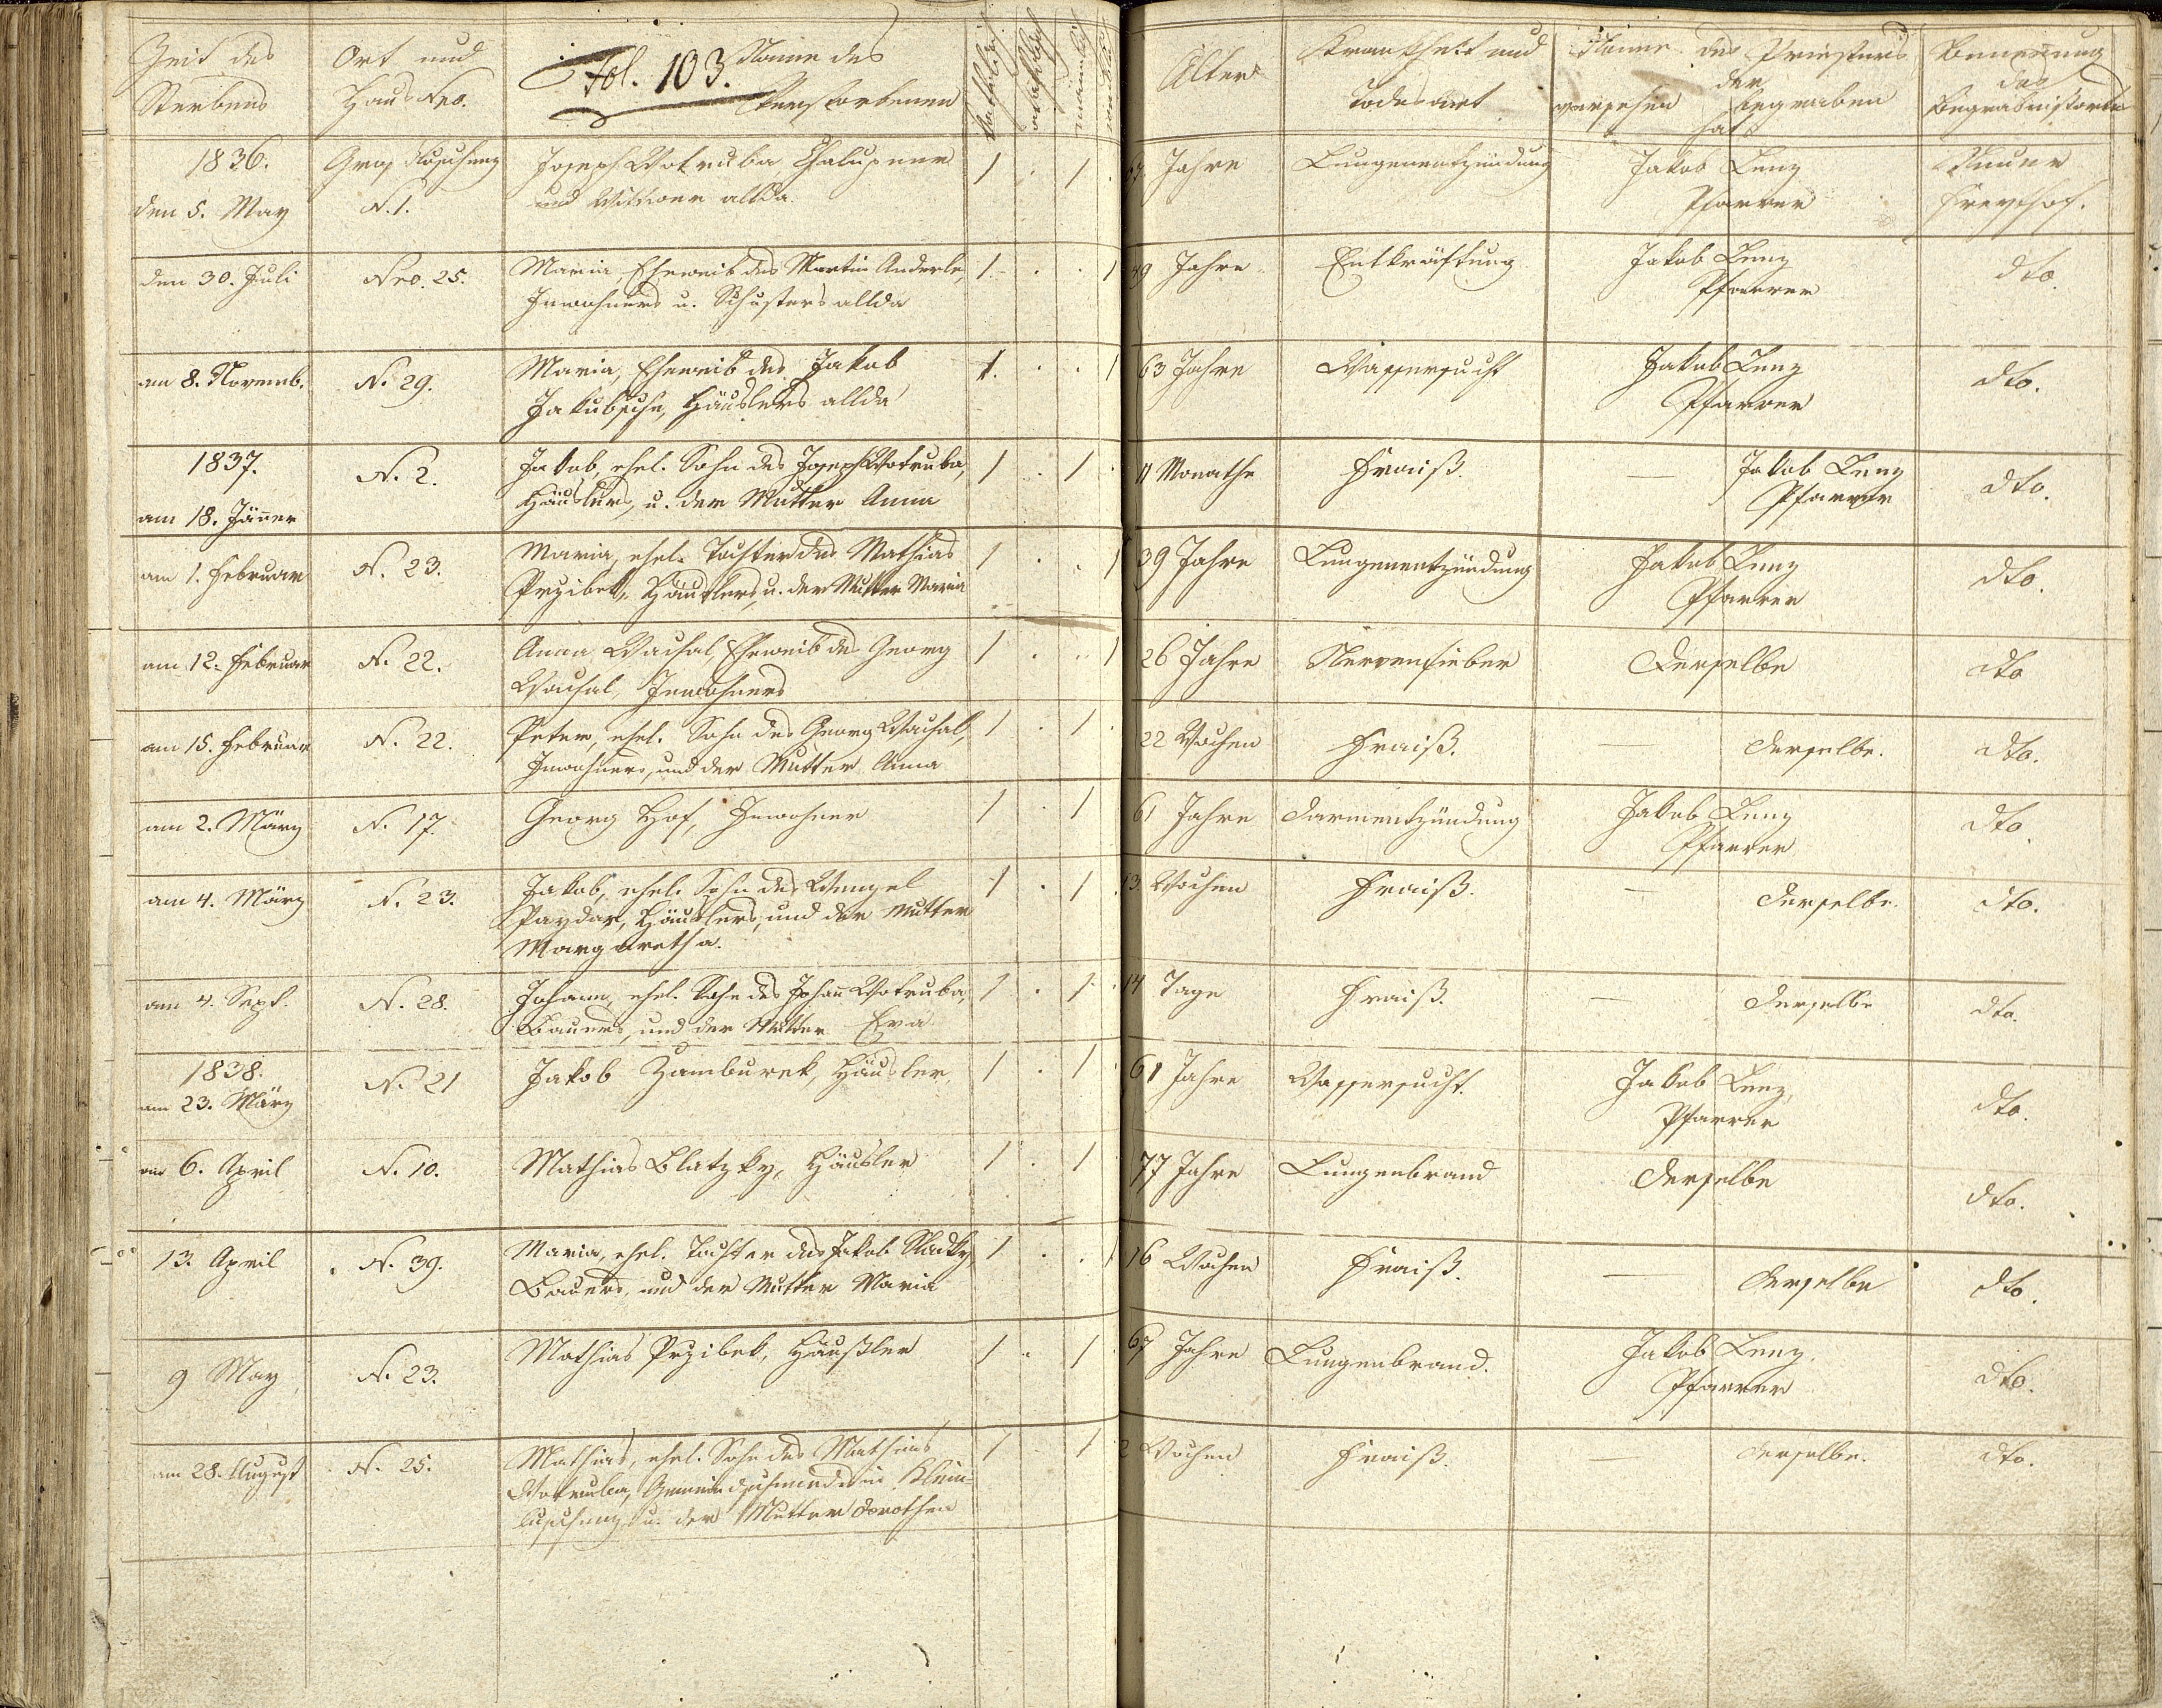 Zeit des Sterbens
Ort und Haus Nro.
Fol. 103.
Name des Verstorbenen
katholisch
männlich
weiblich
Alter
Krankheit und Todesart
Name des Priesters der
versehen begraben
hat
Benennung des Begräbnißorts
1836.
den 5. May
Groß
N. 1.
Joseph Wotruba, Chalupner
und Wittwer allda.
1 . 1 .
Jahre
Lungenentzündung
Jakob Lenz
Pfarrer
Freythof.
den 30. Juli
Nro. 25.
Maria Eheweib des Martin Anderle,
Inwohners u. Schusters allda
1 . . 1
49 Jahre
Entkräftung
Jakob Lenz
Pfarrer
dto.
am 8. Novemb.
N. 29.
Maria, Eheweib des Jakob
Jakubsche, Häuslers allda
1 . . 1
63 Jahre
Wassersucht
Jakob Lenz
Pfarrer
dto.
1837.
am 18. Jäner
N. 2.
Jakob, ehel. Sohn des Joseph Wotruba,
Häuslers, u. der Mutter Anna
1 . 1
11 Monathe
Fraiß.
—
Jakob Lenz
Pfarrer
dto.
am 1. Februar
N. 23.
Maria, ehel. Tochter des Mathias
Przibek, Häuslers, u. der Mutter Maria
1 . . 1
39 Jahre
Lungenentzündung
Jakob Lenz
Pfarrer
dto.
am 12. Februar
N. 22.
Anna Wachal, Eheweib des Georg
Wachal, Inwohners
1 . . 1
26 Jahre
Nervenfieber
Derselbe
dto
am 15. Februar
N. 22.
Peter, ehel. Sohn des Georg Wachal,
Inwohners, und der Mutter Anna
1 . 1 .
22 Wochen
Fraiß.
—
Derselbe.
dto.
am 2. März
N. 17.
Georg Hof, Inwohner
1 . 1
61 Jahre
Darmentzündung
Jakob Lenz
Pfarrer
dto.
am 4. März
N. 23.
Jakob, ehel. Sohn des Wenzel
Paydar, Häuslers, und der Mutter
Margaretha.
1 . 1 .
13. Wochen
Fraiß.
—
Derselbe.
dto.
am 4. Sept.
N. 28.
Johann, ehel. Sohn des Johañ Wotruba,
Bauers, und der Mutter Eva
1 . 1 .
14 Tage
Fraiß.
—
Derselbe
dto.
1838.
am 23. März
N. 21
Jakob Zamburek, Häusler,
1 . 1 .
61 Jahre
Wassersucht.
Jakob Lenz,
Pfarrer
dto.
am 6. April
N. 10.
Mathias Blatzky, Häusler
1 . 1
77 Jahre
Lungenbrand
Derselbe
dto.
13. April
N. 39.
Maria, ehel. Tochter des Jakob Sladky,
Bauers, und der Mutter Maria
1 . . 1
16 Wochen
Fraiß.
—
Derselbe
dto.
9 May
N. 23.
Mathias Przibek, Häußler
1 . 1 .
67 Jahre
Lungenbrand.
Jakob Lenz,
Pfarrer
dto.
am 28. August
N. 25.
Mathias, ehel. Sohn des Mathias
Wotruba, Gemeindschmieds in Klein-
u. der Mutter Dorothea
1 . 1
2 Wochen
Fraiß.
—
Derselbe.
dto.